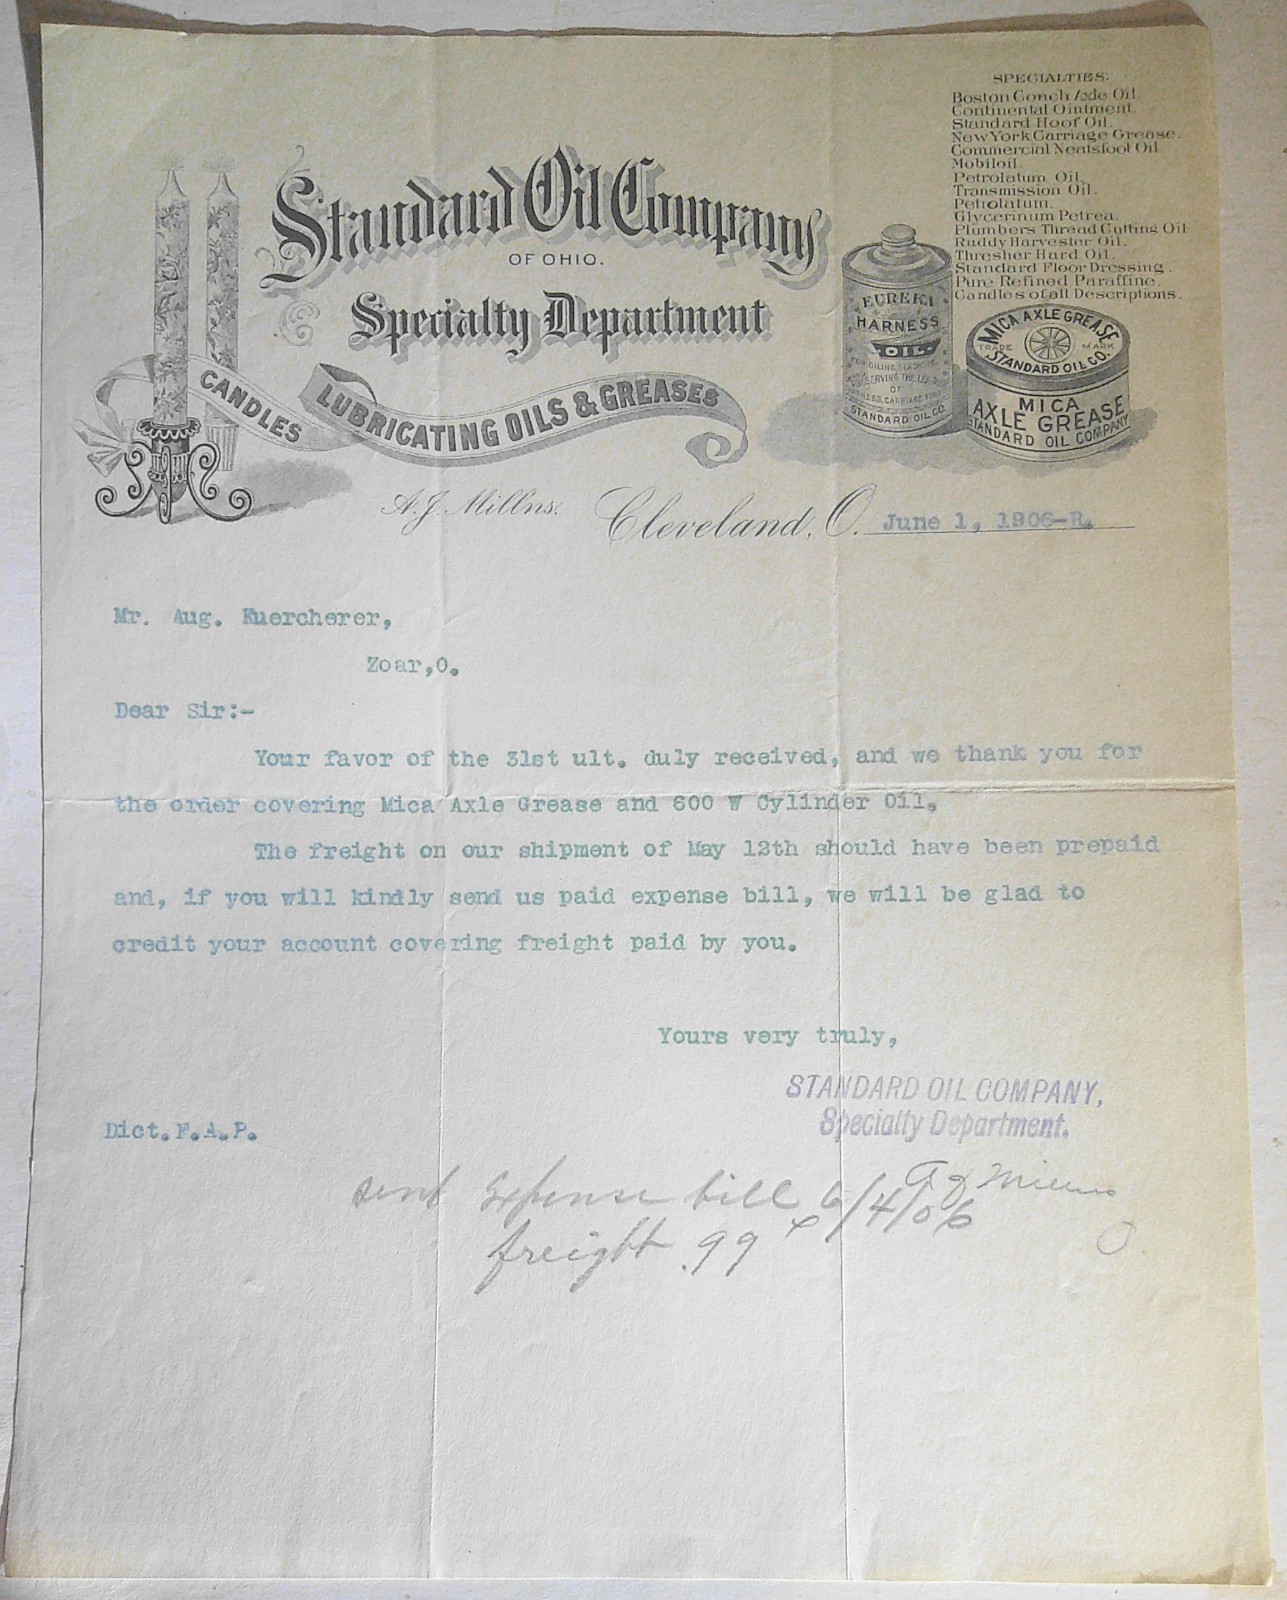 SPECIALTIES:
Boston Coach Axle Oil
Continental Ointment.
Standard Hoof Oil.
New York Carriage Grease.
Commercial Neatsfoot Oil
Mobiloil.
Petrolatum Oil.
Transmission Oil.
Petrolatum.
Glycerinum Petrea.
Plumbers Thread Cutting Oil
Ruddy Harvester Oil.
Thresher Hard Oil.
Standard Floor Dressing.
Pure Refined Paraffine.
Candles of all Descriptions.
Standard Oil Company
OF OHIO.
Specialty Department
CANDLES
LUBRICATING OILS & GREASES
EUREKA
HARNESS
OIL
FOR OILING
PRESERVING THE
OF
HARNESS, CARRIAGE
STANDARD OIL CO.
MICA AXLE GREASE
TRADE MARK
STANDARD OIL CO.
MICA
AXLE GREASE
STANDARD OIL COMPANY
A. J. Millns. Cleveland, O. June 1, 1906-R.
Mr. Aug. Kuercherer,
Zoar,O.
Dear Sir:-
Your favor of the 31st ult. duly received, and we thank you for
the order covering Mica Axle Grease and 600 W Cylinder Oil.
The freight on our shipment of May 12th should have been prepaid
and, if you will kindly send us paid expense bill, we will be glad to
credit your account covering freight paid by you.
Yours very truly,
STANDARD OIL COMPANY,
Specialty Department.
Dict.F.A.P.
A J Millns
sent Expense bill 6/4/06
freight .99